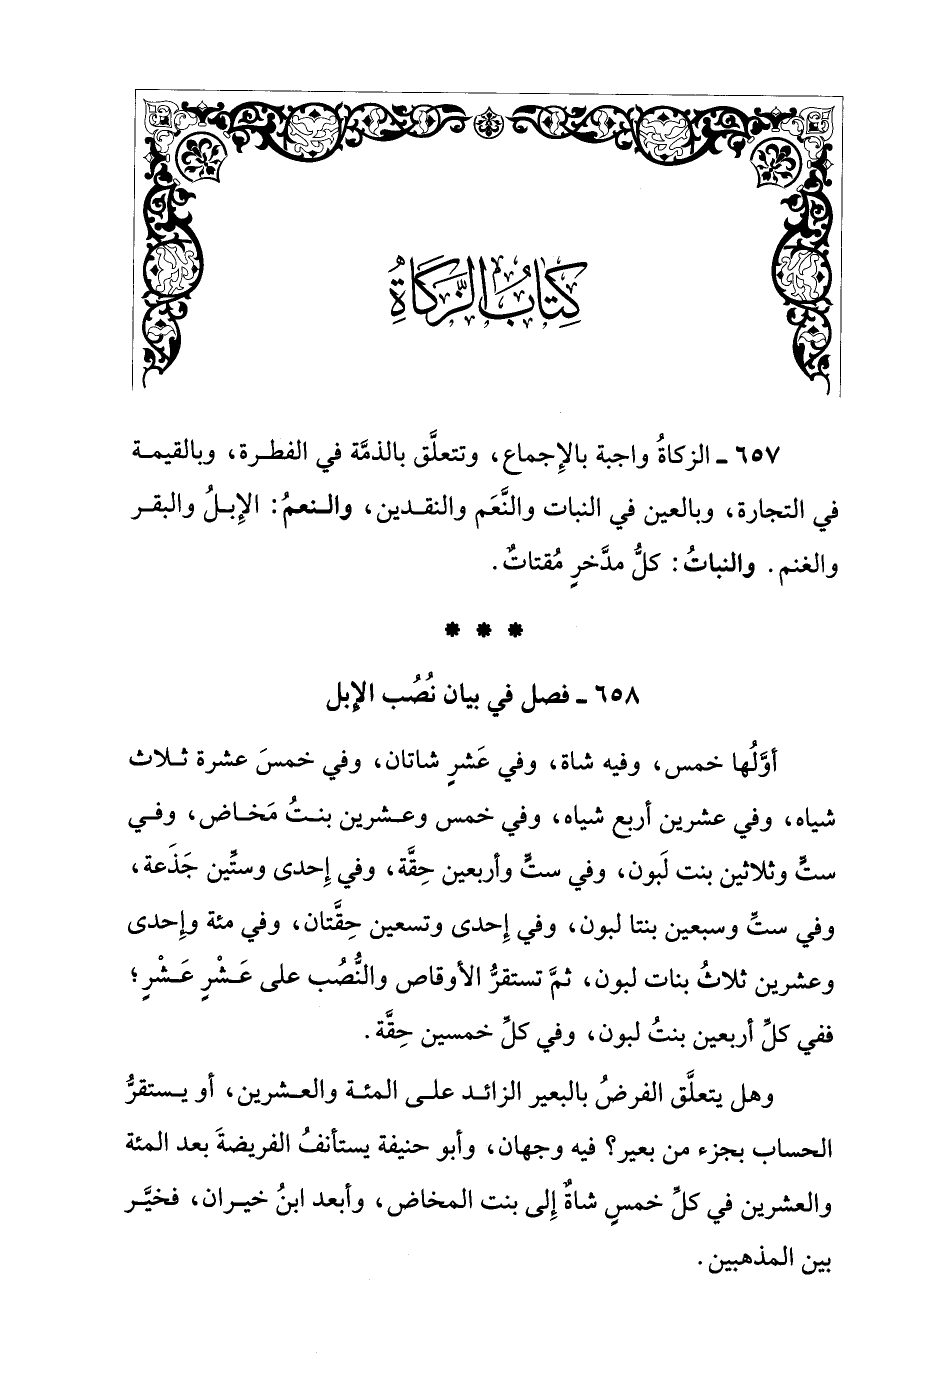 كِتَابُ الزَّكَاةِ
٦٥٧ ـ الزكاةُ واجبة بالإجماع، وتتعلَّق بالذمَّة في الفطرة، وبالقيمة
في التجارة، وبالعين في النبات والنَّعَم والنقدين، والنعمُ: الإبلُ والبقر
والغنم. والنباتُ: كلُّ مدَّخرٍ مُقتاتٌ.
* * *
٦٥٨ ـ فصل في بيان نُصُب الإبل
أوَّلُها خمس، وفيه شاة، وفي عَشرٍ شاتان، وفي خمسَ عشرة ثلاث
شياه، وفي عشرين أربع شياه، وفي خمس وعشرين بنتُ مَخاض، وفي
ستٍّ وثلاثين بنت لَبون، وفي ستٍّ وأربعين حِقَّة، وفي إحدى وستِّين جَذَعة،
وفي ستِّ وسبعين بنتا لبون، وفي إحدى وتسعين حِقَّتان، وفي مئة وإحدى
وعشرين ثلاثُ بنات لبون، ثمَّ تستقرُّ الأوقاص والنُّصُب على عَشْرٍ عَشْرٍ؛
ففي كلِّ أربعين بنتُ لبون، وفي كلِّ خمسين حِقَّة.
وهل يتعلَّق الفرضُ بالبعير الزائد على المئة والعشرين، أو يستقرُّ
الحساب بجزء من بعير؟ فيه وجهان، وأبو حنيفة يستأنفُ الفريضةَ بعد المئة
والعشرين في كلِّ خمسٍ شاةٌ إلى بنت المخاض، وأبعد ابنُ خيران، فخيَّر
بين المذهبين.